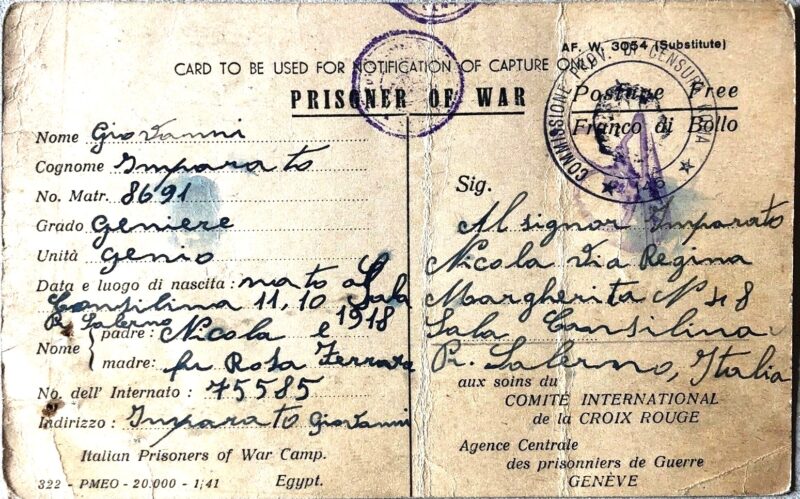 AF. W. 3054 (Substitute)
CARD TO BE USED FOR NOTIFICATION OF CAPTURE ONLY
PRISONER OF WAR
Postage Free
Franco di Bollo
COMMISSIONE PROV. DI CENSURA
Nome Giovanni
Cognome Imparato
No. Matr. 8691
Grado Geniere
Unità genio
Data e luogo di nascita: nato a Sala
Consilina 11,10 1918
Pr Salerno
Nome padre: Nicola e
madre: fu Rosa Ferrara
No. dell' Internato: 75585
Indirizzo: Imparato Giovanni
Italian Prisoners of War Camp.
Egypt.
322 - PMEO - 20.000 - 1/41
Sig.
Al signor Imparato
Nicola Via Regina
Margherita N 48
Sala Consilina
Pr. Salerno, Italia
aux soins du
COMITÉ INTERNATIONAL
de la CROIX ROUGE
Agence Centrale
des prisonniers de Guerre
GENÈVE